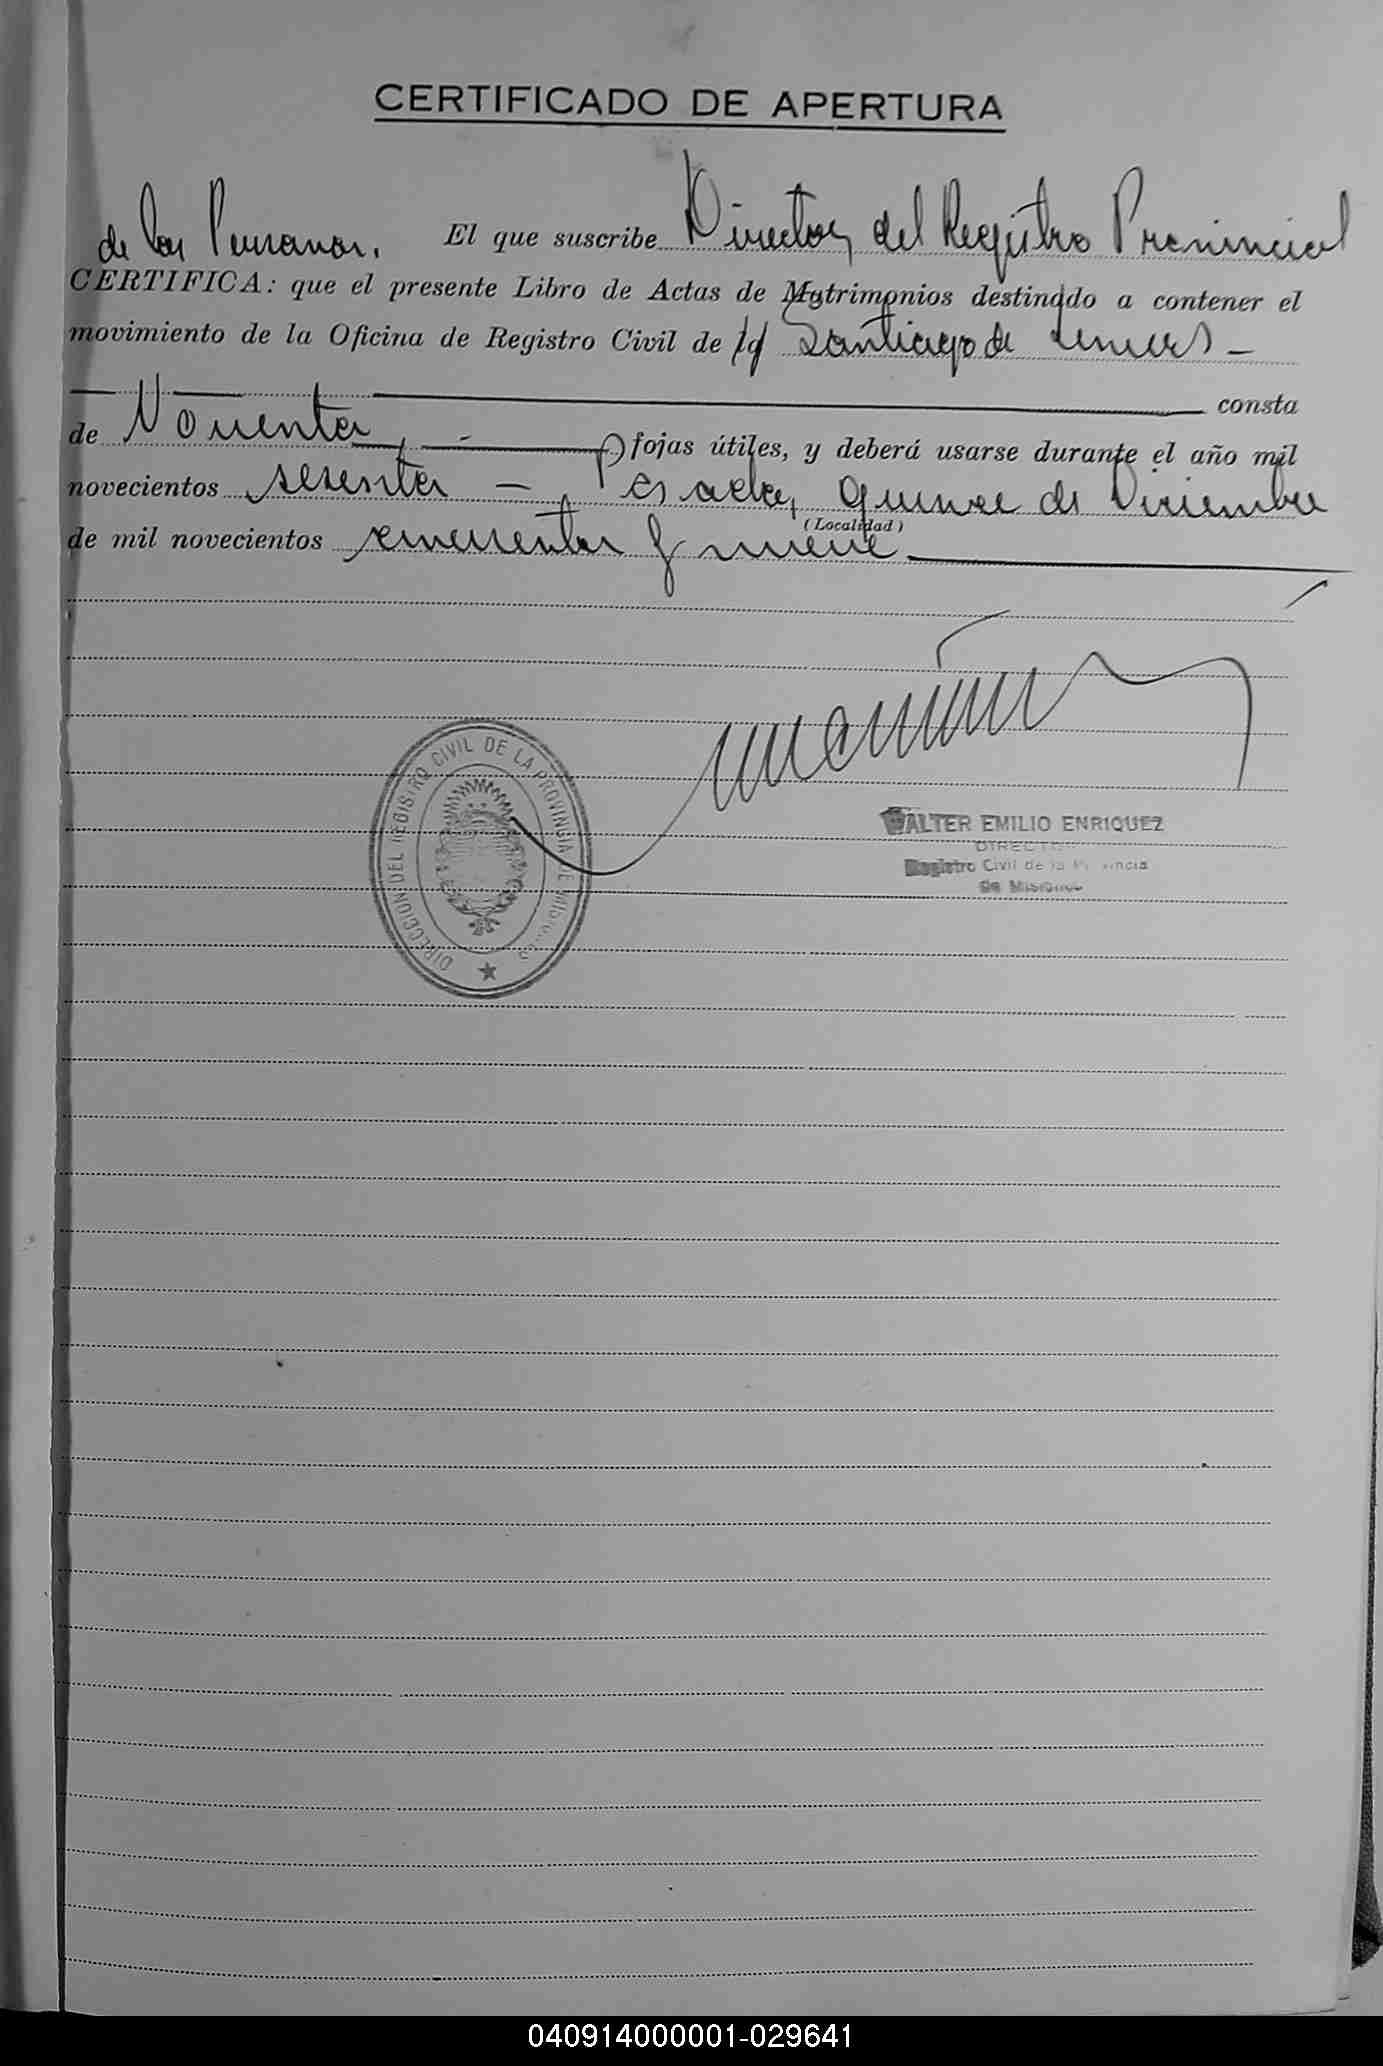 CERTIFICADO DE APERTURA
de las Personas. El que suscribe Director del Registro Provincial
CERTIFICA: que el presente Libro de Actas de Matrimonios destinado a contener el
movimiento de la Oficina de Registro Civil de Santiago de Liniers —
consta
de Noventa fojas útiles, y deberá usarse durante el año mil
novecientos sesenta — Posadas, quince de Diciembre
(Localidad)
de mil novecientos cincuenta y nueve
DIRECCION DEL REGISTRO CIVIL DE LA PROVINCIA DE MISIONES
WALTER EMILIO ENRIQUEZ
DIRECTOR
Registro Civil de la Provincia
de Misiones
040914000001-029641